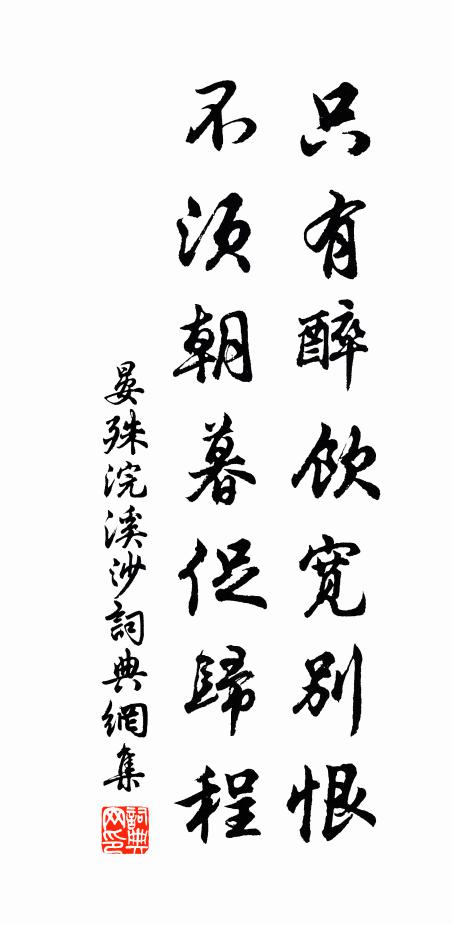 只有醉飲寬別恨
不須朝暮促歸程
晏殊浣溪沙詞典網集
詞典
网印